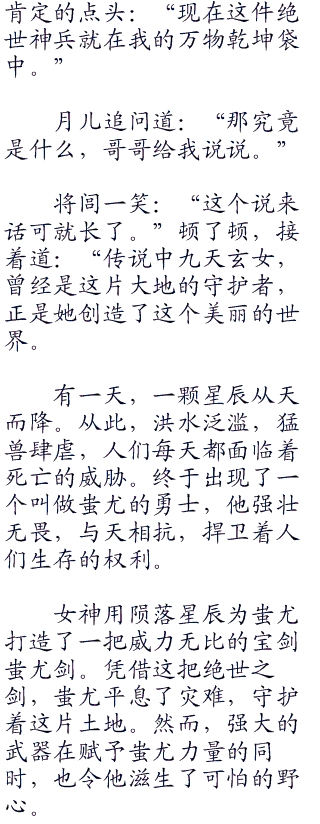 肯定的点头：“现在这件绝
世神兵就在我的万物乾坤袋
中。”
月儿追问道：“那究竟
是什么，哥哥给我说说。”
将闾一笑：“这个说来
话可就长了。”顿了顿，接
着道：“传说中九天玄女，
曾经是这片大地的守护者，
正是她创造了这个美丽的世
界。
有一天，一颗星辰从天
而降。从此，洪水泛滥，猛
兽肆虐，人们每天都面临着
死亡的威胁。终于出现了一
个叫做蚩尤的勇士，他强壮
无畏，与天相抗，捍卫着人
们生存的权利。
女神用陨落星辰为蚩尤
打造了一把威力无比的宝剑
蚩尤剑。凭借这把绝世之
剑，蚩尤平息了灾难，守护
着这片土地。然而，强大的
武器在赋予蚩尤力量的同
时，也令他滋生了可怕的野
心。